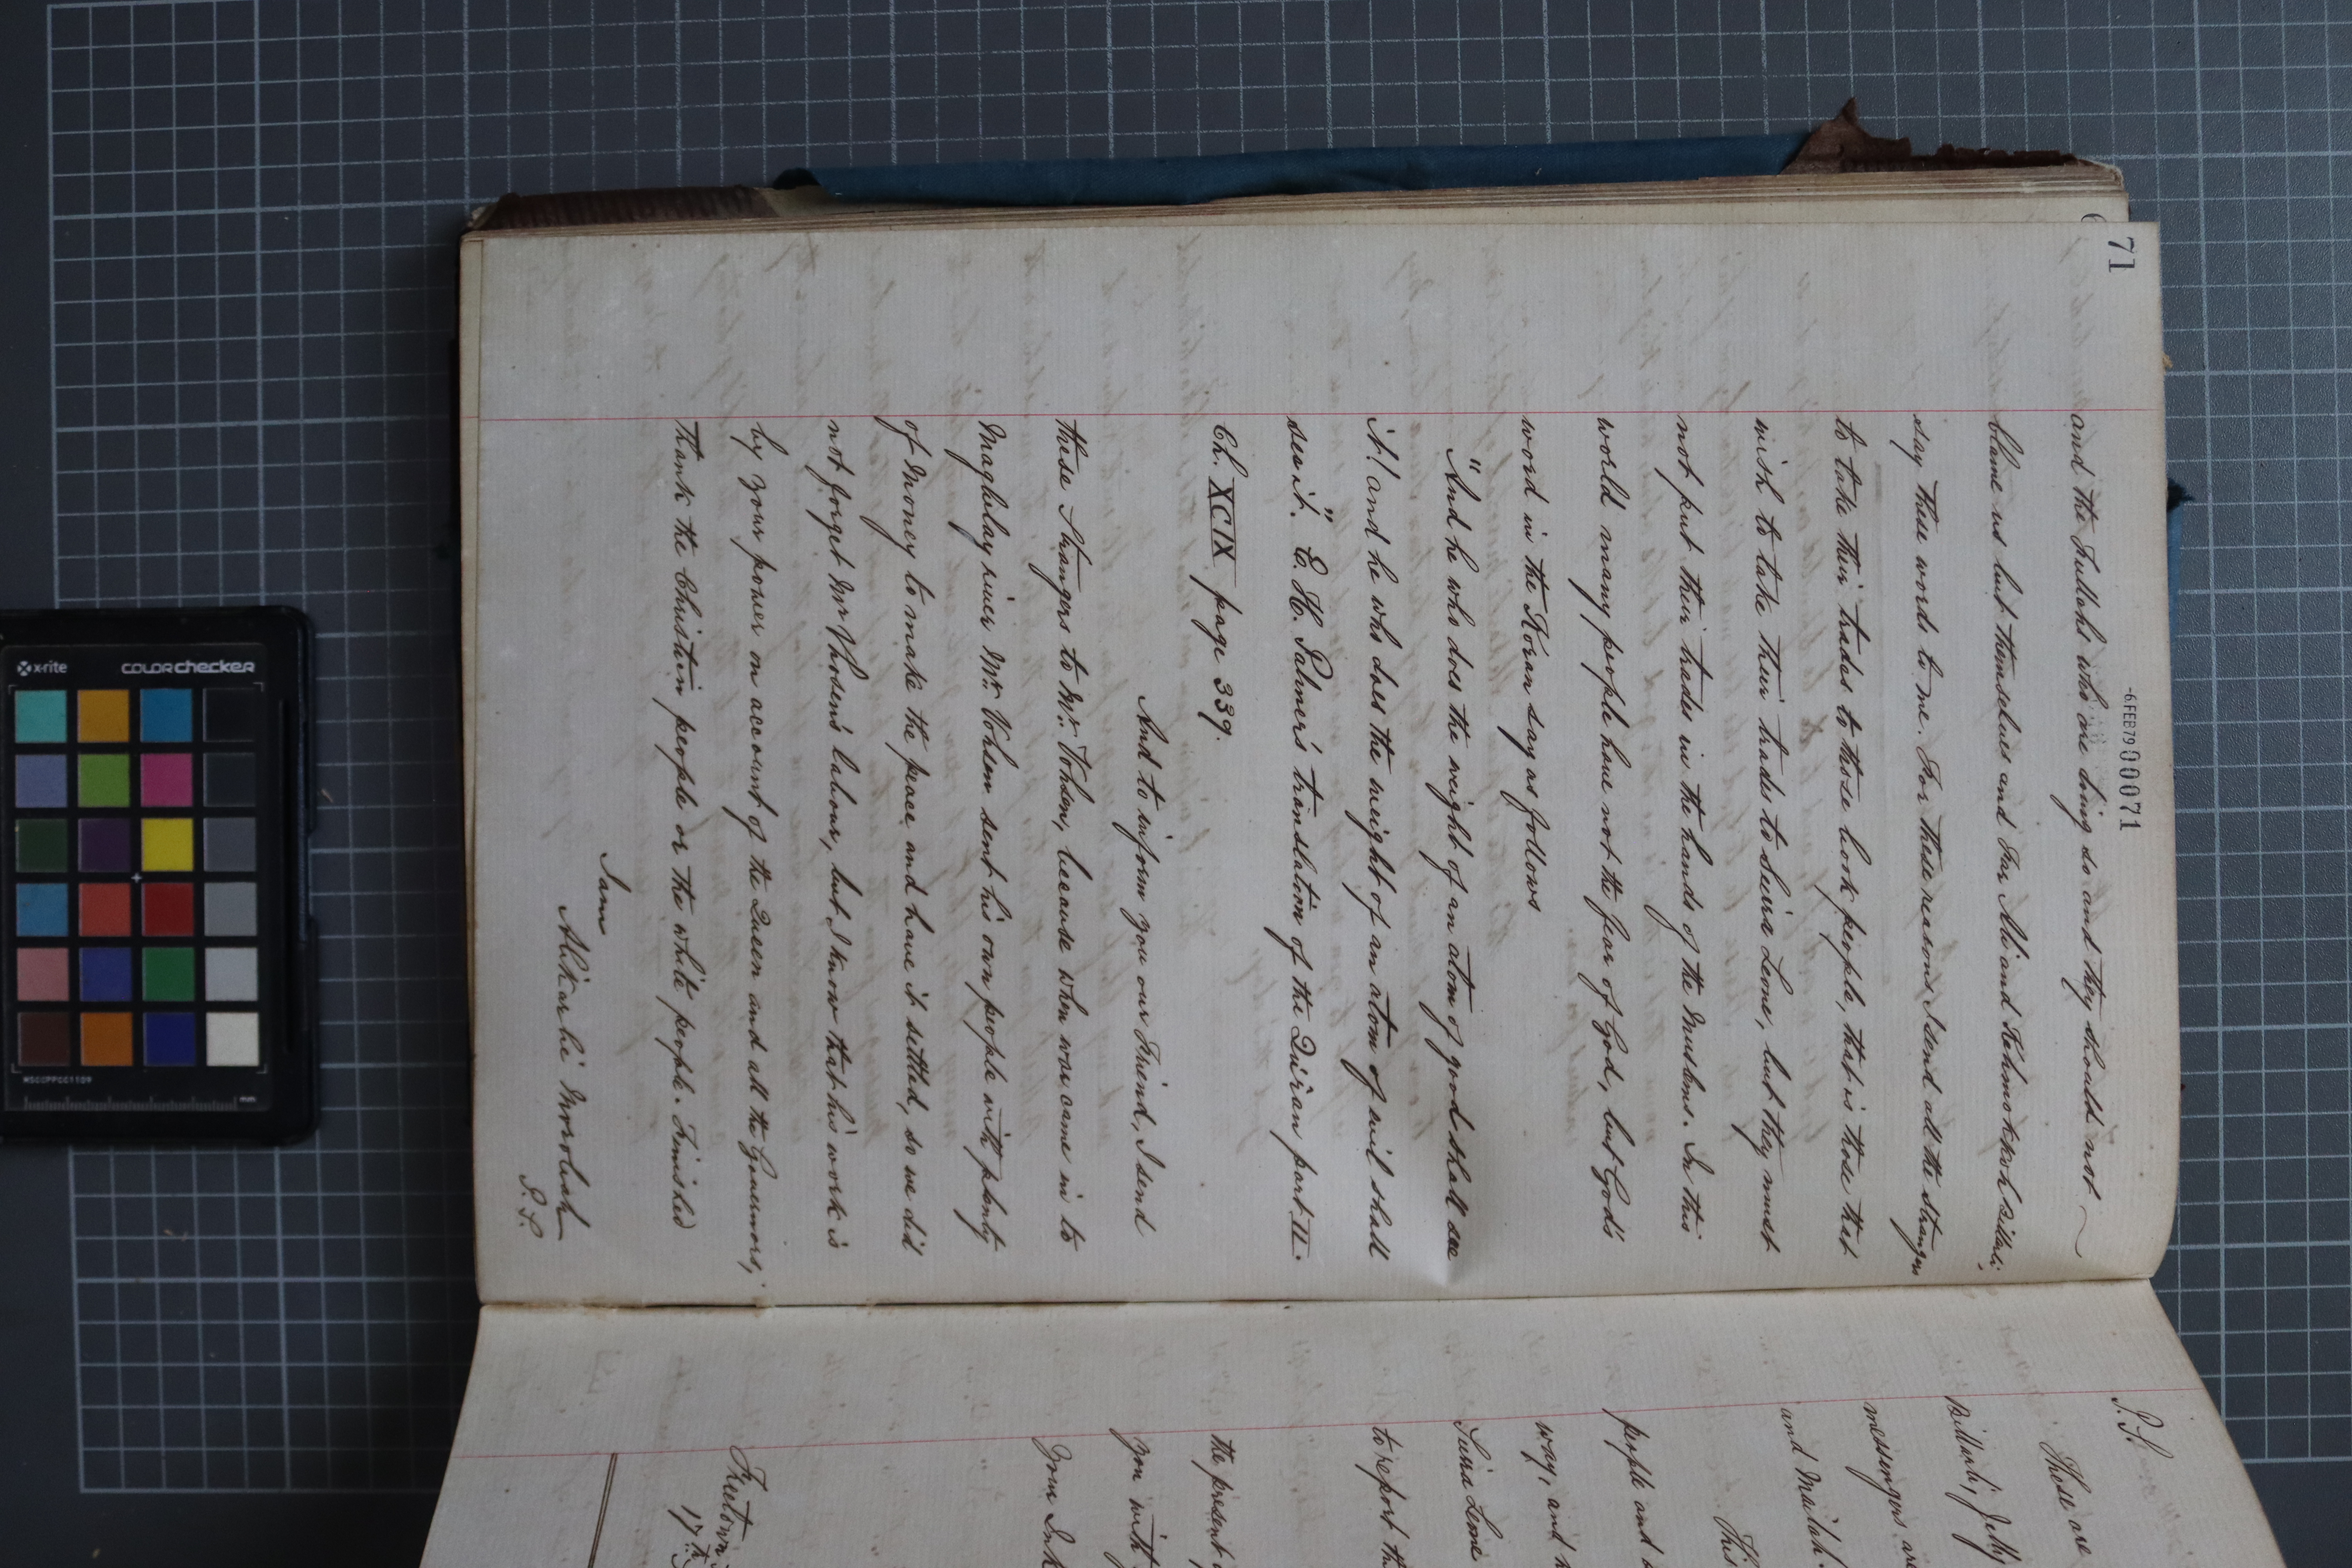 71
-6 FEB 79 00071
and the Fullahs who are doing so and they should not
blame us but themselves and Fin Ali and Fohmokkoh Billali,
say these words to me. For these reasons I send all the strangers
to take their trades to those book people, that is those that
wish to take their trades to Seira Leone, but they must
not put their trades in the hands of the Muslims. In this
world many people have not the fear of God, but God's
word in the Koran say as follows
"And he who does the weight of an atom of good shall see
it! and he who does the weight of an atom of evil shall
see it." E. H. Palmer's translation of the Qur'an part II.
Ch. XCIX page 339.
And to inform you our Friend, I send
these Strangers to Mr. Vohsen, because when war came in to
Maghbelay river Mr. Vohsen sent his own people with plenty
of Money to make the peace and have it settled, so we did
not forget Mr Vhosen's labour, but I know that his work is
by your power on account of the Queen and all the Governors;
Thank the Christien people or the white people. Finished
I am
Alikarlie Morobah
P.S.
P.S.
These are
Billali, Jelly
messengers are
and Mailah.
This
people and
way, and
Seira Leone
to report th
the present
you with
Your
Freetown
17th
x-rite
colorchecker
MSCCPPCC1109
mm